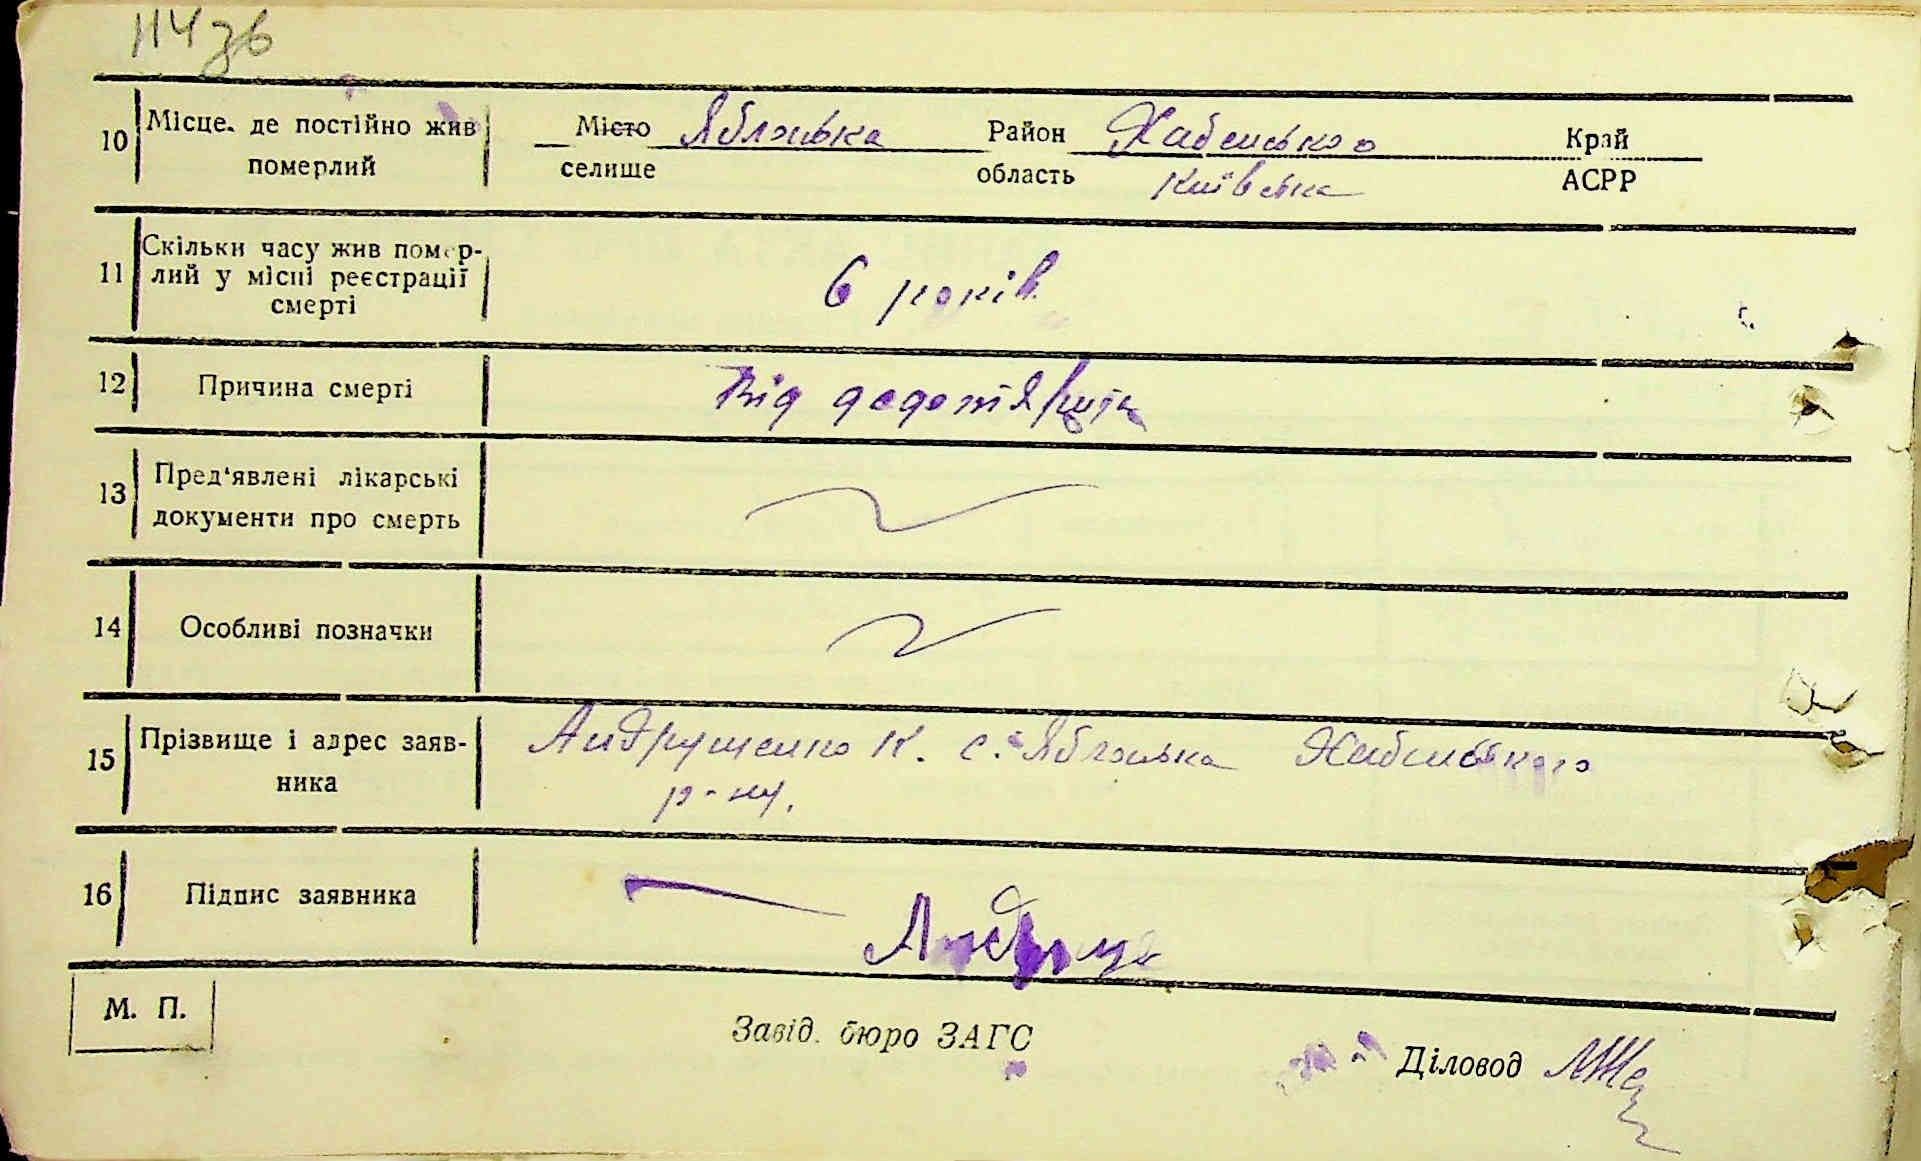 114 зв
10 Місце де постійно жив померлий
Місто Яблонька Район Хабенського Край
селище область Київська АСРР
11 Скільки часу жив померлий у місці реєстрації смерті
6 років
12 Причина смерті
Від
13 Пред'явлені лікарські документи про смерть
14 Особливі позначки
15 Прізвище і адрес заявника
Андрущенко К. с. Яблонька Хабенського
р-ну.
16 Підпис заявника
М. П.
Завід. бюро ЗАГС
Діловод